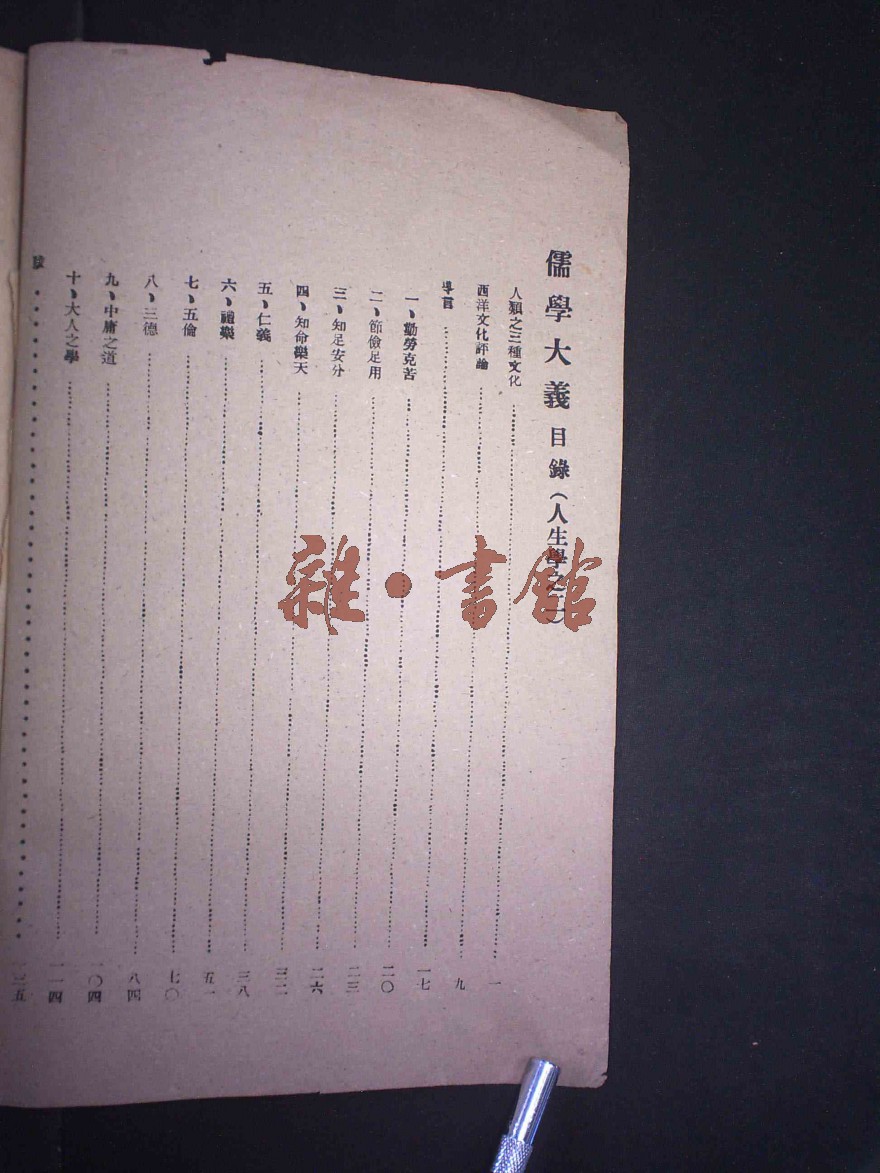 儒學大義目錄（人生學之二）
人類之三種文化……一
西洋文化評論……九
導言……一七
一、勤勞克苦……二〇
二、節儉足用……二三
三、知足安分……二六
四、知命樂天……三二
五、仁義……三八
六、禮樂……五一
七、五倫……七〇
八、三德……八四
九、中庸之道……一〇四
十、大人之學……一一四
跋……一三五
雜·書館